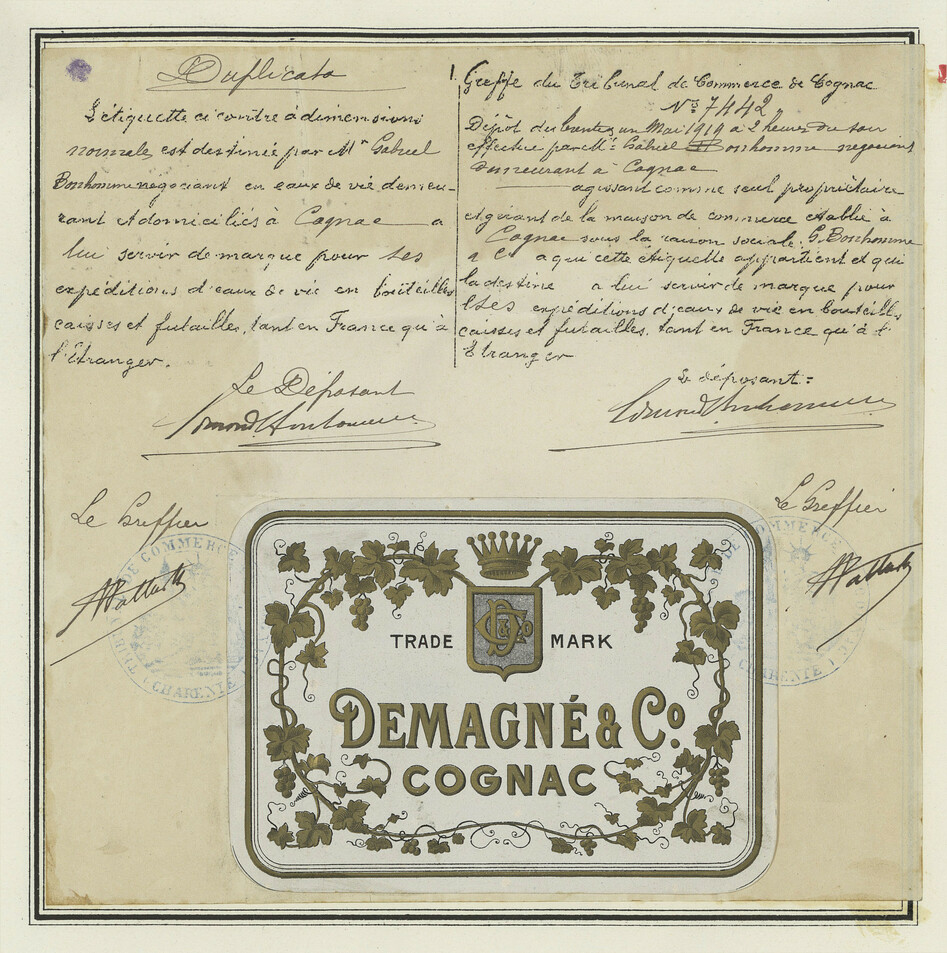 Duplicata
L'étiquette ci contre à dimensions
normales est destinée par Mr Gabriel
Bonhomme negociant en eaux de vie demeu-
rant et domiciliés à Cognac a
lui servir de marque pour ses
expéditions d'eaux de vie en bouteilles
caisses et futailles, tant en France qu'à
l'Etranger.
Le Déposant
Le Greffier
Greffe du Tribunal de Commerce de Cognac
No 7442
Dépôt du trente un Mai 1919 à 2 heures du soir
effectué par Mr Gabriel Bonhomme negociant
demeurant à Cognac
agissant comme seul propriétaire
et gérant de la maison de commerce établie à
Cognac sous la raison sociale: G. Bonhomme
& Co a qui cette étiquette appartient et qui
la destine a lui servir de marque pour
ses expéditions d'eaux de vie en bouteilles
caisses et futailles, tant en France qu'à l'
Etranger
Le déposant:
Le Greffier
TRADE MARK
DEMAGNÉ & Co.
COGNAC
DE COMMERCE
CHARENTE
DE COMMERCE
CHARENTE